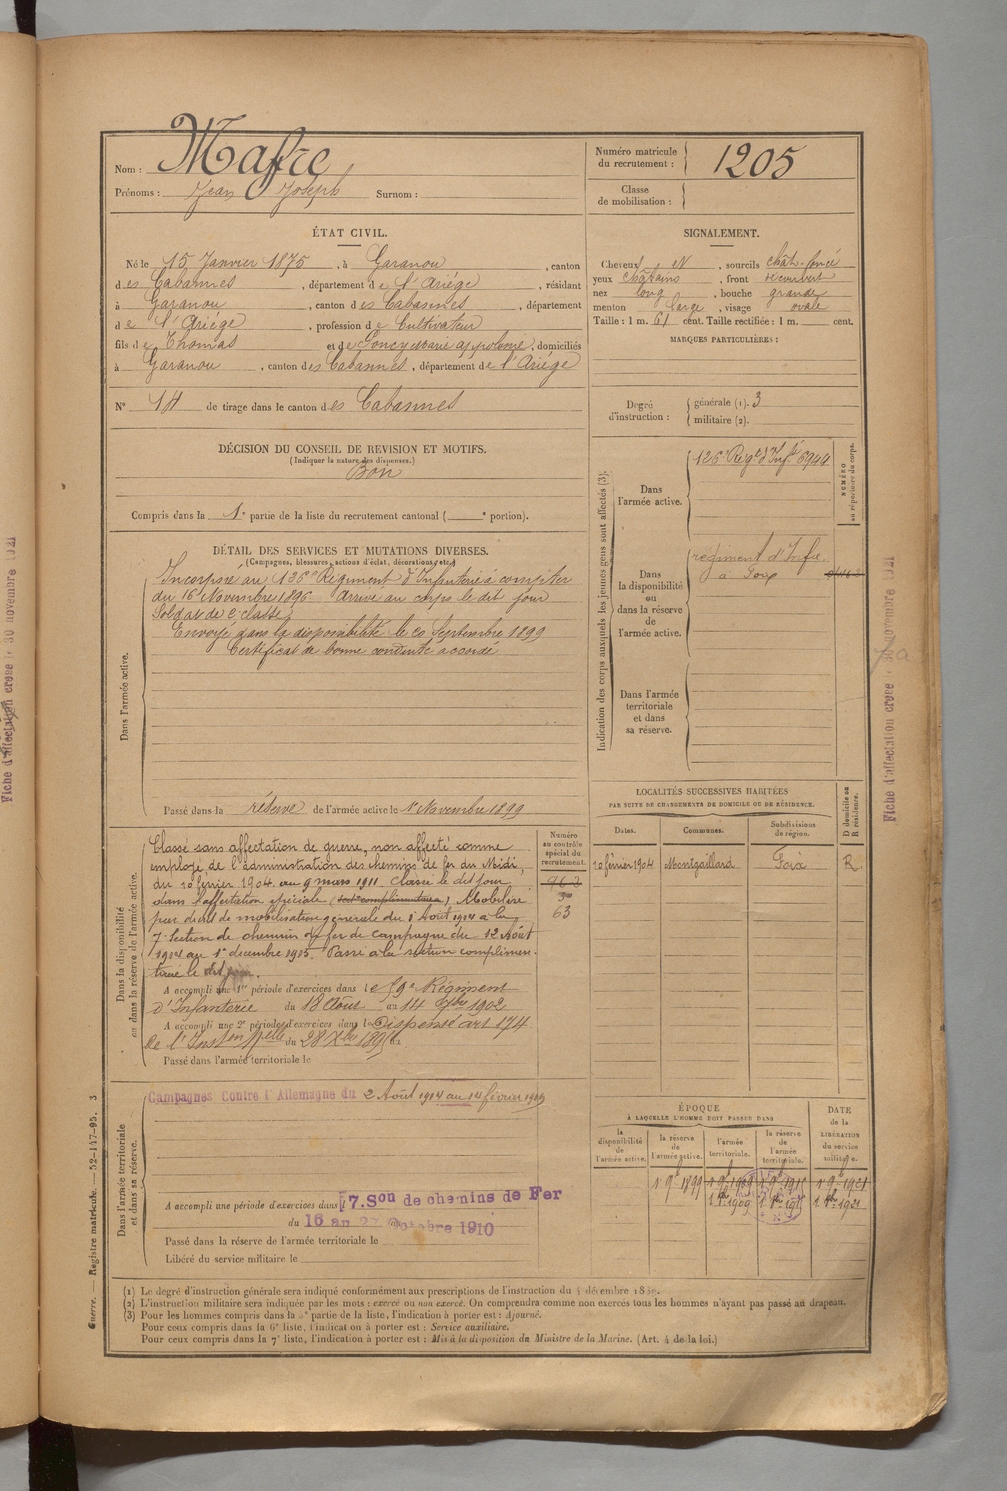 Nom : Mafre
Prénoms : Jean Joseph Surnom :
Numéro matricule du recrutement : 1205
Classe de mobilisation :
ÉTAT CIVIL.
Né le 15 Janvier 1875, à Garanou, canton
des Cabannes, département de l'Ariège, résidant
à Garanou, canton des Cabannes, département
de l'Ariége, profession de Cultivateur
fils de Thomas et de Goncy Marie appolonie, domiciliés
à Garanou, canton des Cabannes, département de l'Ariége
N° 14 de tirage dans le canton des Cabannes
SIGNALEMENT.
Cheveux N, sourcils chât-foncé
yeux chatains, front découvert
nez long, bouche grande
menton large, visage ovale
Taille : 1 m. 61 cent. Taille rectifiée : 1 m. cent.
MARQUES PARTICULIÈRES :
Degré d'instruction : générale (1). 3
militaire (2).
DÉCISION DU CONSEIL DE REVISION ET MOTIFS.
(Indiquer la nature des dispenses.)
Bon
Compris dans la 1e partie de la liste du recrutement cantonal ( e portion).
DÉTAIL DES SERVICES ET MUTATIONS DIVERSES.
(Campagnes, blessures, actions d'éclat, décorations, etc.)
Dans l'armée active.
Incorporé au 126e Régiment d'Infanterie à compter
du 16 Novembre 1896 Arrivé au corps le dit jour
Soldat de 2e classe
Envoyé dans la disponibilité le 20 Septembre 1899
Certificat de bonne conduite accordé
Passé dans la réserve de l'armée active le 1er Novembre 1899
Indication des corps auxquels les jeunes gens sont affectés (3).
NUMÉRO au répertoire du corps.
Dans l'armée active.
126e Regt d'Infie 6944
Dans la disponibilité ou dans la réserve de l'armée active.
regiment d'Infie
à Foix
Dans l'armée territoriale et dans sa réserve.
LOCALITÉS SUCCESSIVES HABITÉES
PAR SUITE DE CHANGEMENTS DE DOMICILE OU DE RÉSIDENCE.
D domicile ou R résidence.
Dates. Communes. Subdivisions de région.
10 février 1904 Montgaillard Foix R
Dans la disponibilité ou dans la réserve de l'armée active.
Numéro au contrôle spécial du recrutement.
962
63
Classé sans affectation de guerre, non affecté comme
employé de l'administration des chemins de fer du Midi,
du 10 février 1904 au 9 mars 1911. Classé le dit jour
dans l'affectation spéciale (sect° complémentaire) Mobilisé
par decret de mobilisation générale du 1er Août 1914 à la
7e Section de chemin de fer de Campagne du 12 Août
1914 au 1er décembre 1915. Passé à la section complémen-
taire le dit jour.
A accompli une 1re période d'exercices dans le 59e Régiment
d'Infanterie du 18 Août au 14 7bre 1902
A accompli une 2e période d'exercices dans le Dispensé art 174
de l'Inston du 28 Xbre 1895
Passé dans l'armée territoriale le
Dans l'armée territoriale et dans sa réserve.
Campagnes Contre l'Allemagne du 2 Août 1914 au 14 février 1919
A accompli une période d'exercices dans 7. Son de chemins de Fer
du 16 au 27 Octobre 1910
Passé dans la réserve de l'armée territoriale le
Libéré du service militaire le
ÉPOQUE
À LAQUELLE L'HOMME DOIT PASSER DANS
DATE de la LIBÉRATION du service militaire.
la disponibilité de l'armée active. la réserve de l'armée active. l'armée territoriale. la réserve de l'armée territoriale.
1 9b 1899 1 9b 1909 1 9b 1915 1 9b 1921
1 8b 1909 1 8b 1915 1 8b 1921
(1) Le degré d'instruction générale sera indiqué conformément aux prescriptions de l'instruction du 4 décembre 1889.
(2) L'instruction militaire sera indiquée par les mots : exercé ou non exercé. On comprendra comme non exercés tous les hommes n'ayant pas passé au drapeau.
(3) Pour les hommes compris dans la 5e partie de la liste, l'indication à porter est : Ajourné.
Pour ceux compris dans la 6e liste, l'indication à porter est : Service auxiliaire.
Pour ceux compris dans la 7e liste, l'indication à porter est : Mis à la disposition du Ministre de la Marine. (Art. 4 de la loi.)
Guerre. — Registre matricule. — 52-147-95. 3
Fiche d'affectation créée le 30 novembre 1921
Fiche d'affectation créée le 30 novembre 1921